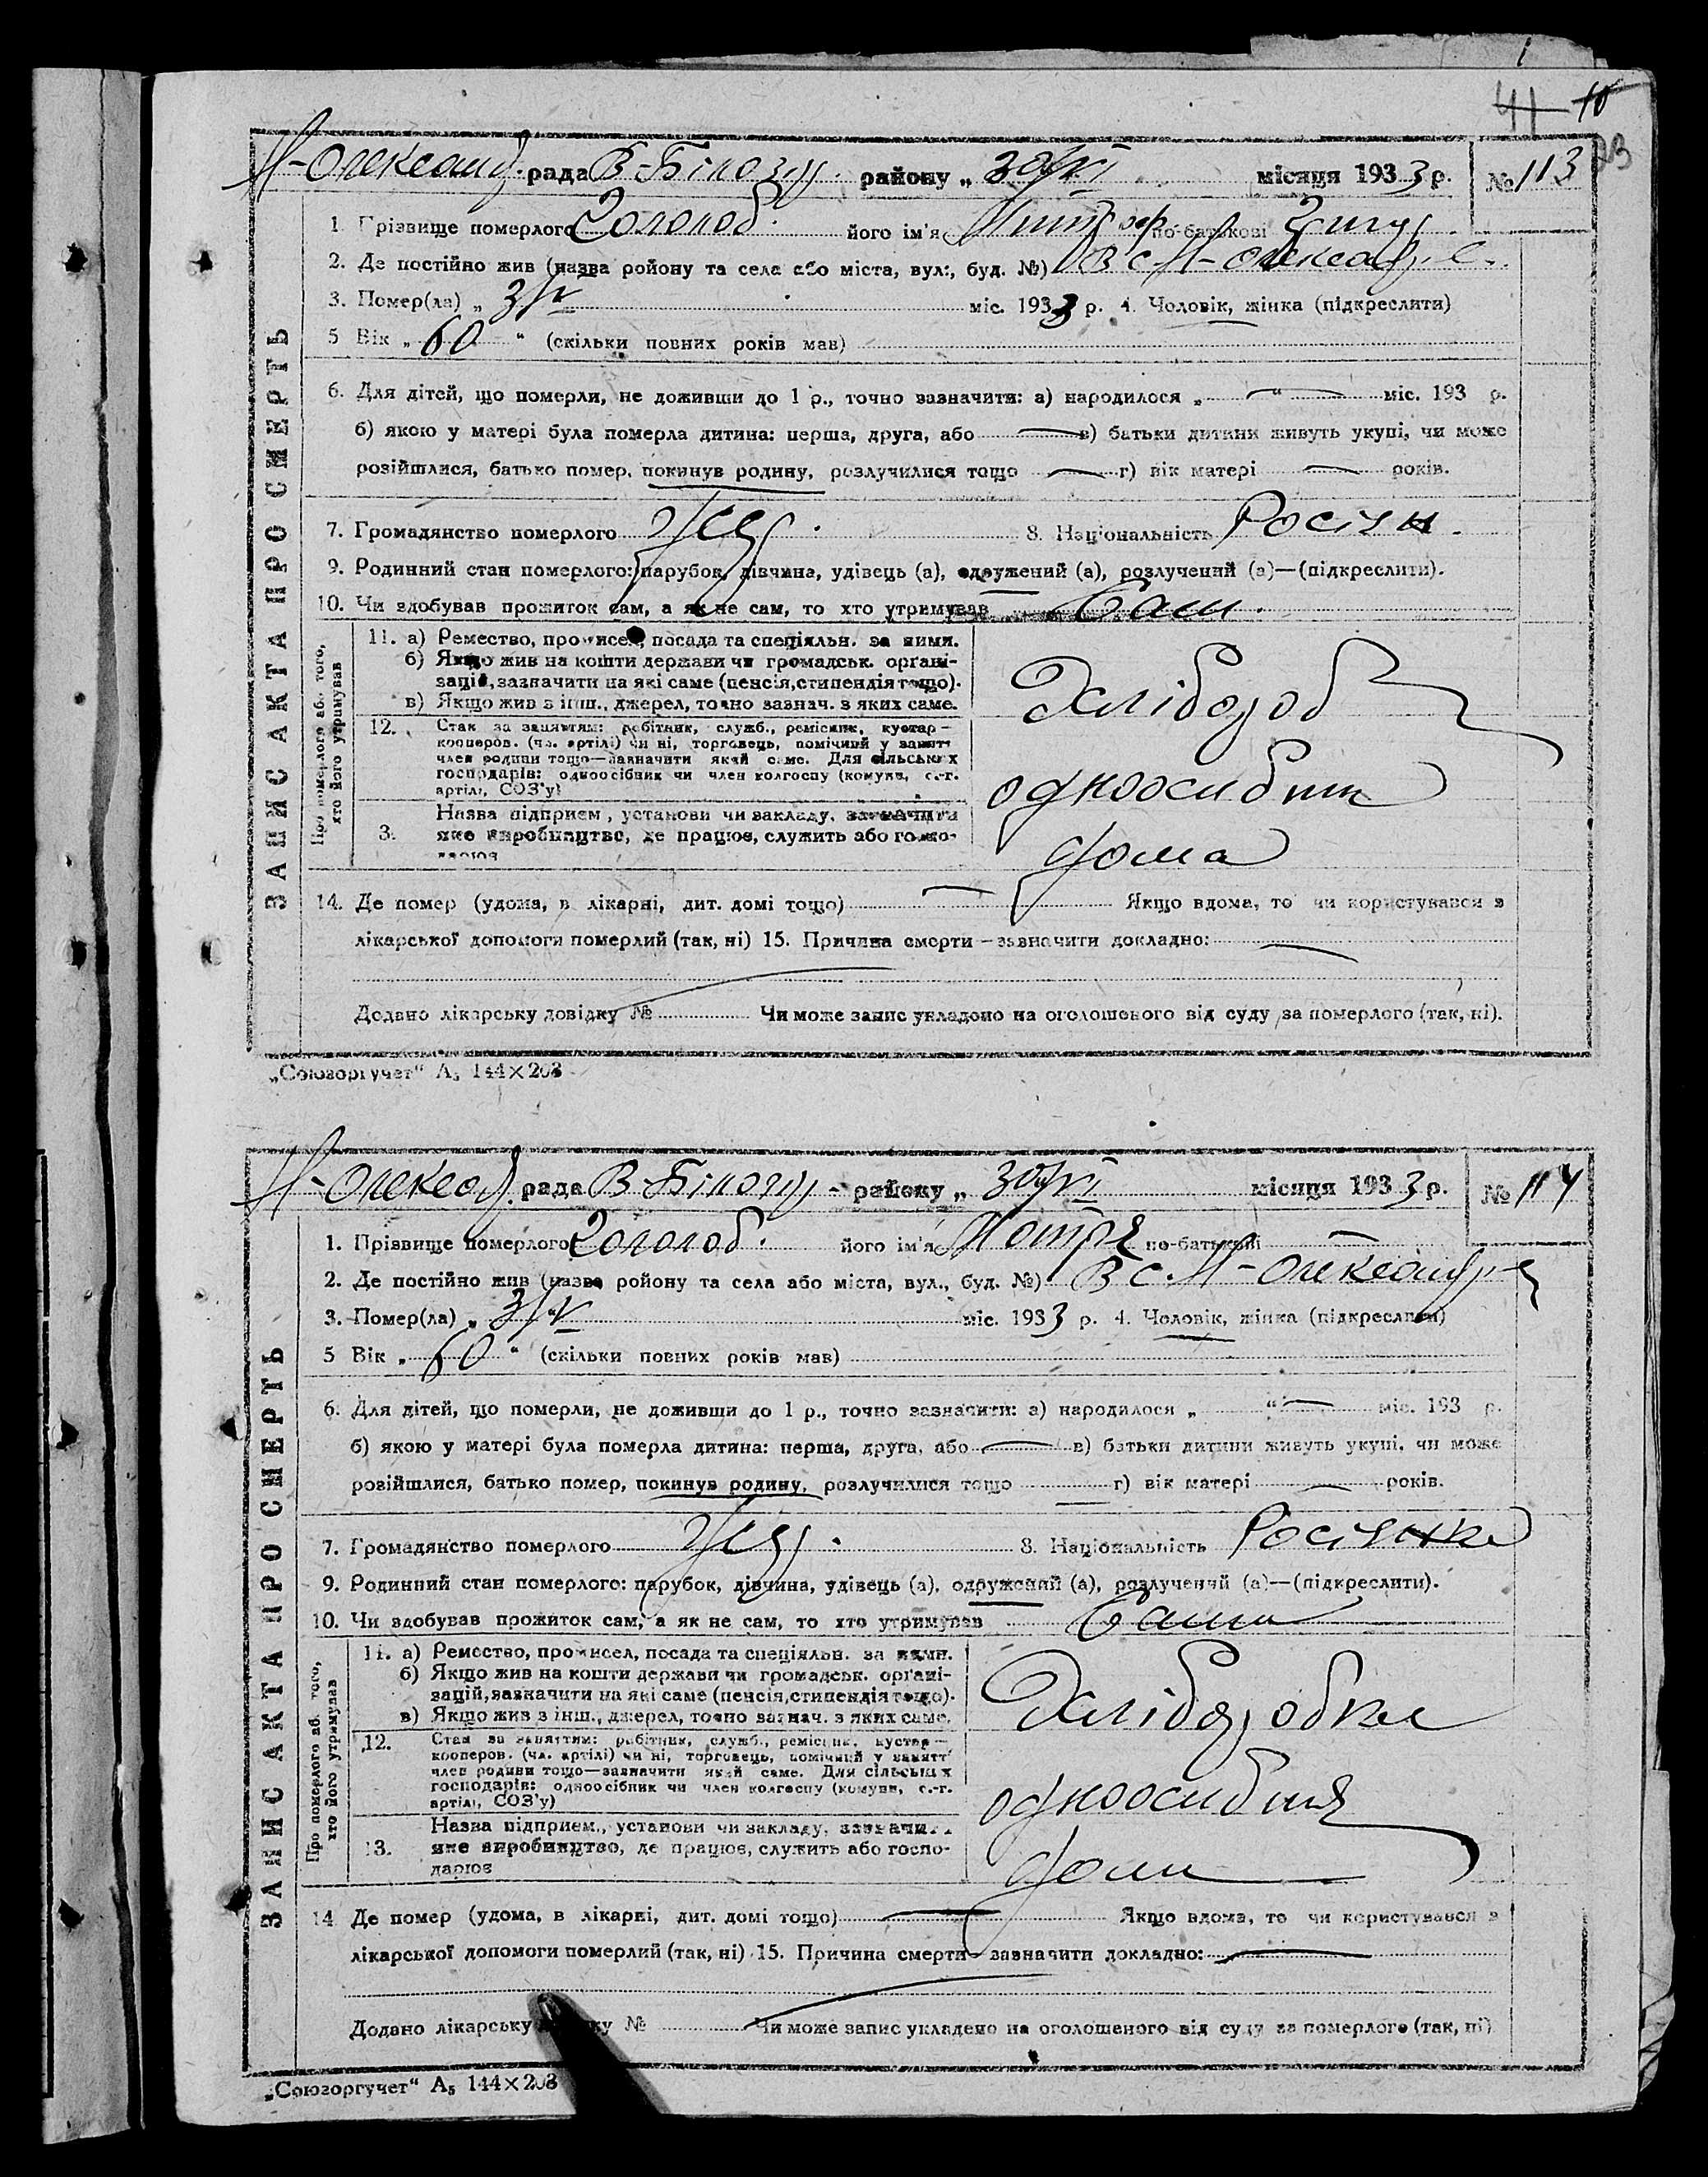 41 10
33
Н-Олександ. рада В-Білозер. району „ 30/VI місяця 1933 р. № 113
1. Прізвище померлого Гололоб. його ім'я Митроф по-батькові Григ
2. Де постійно жив (назва ройону та села або міста, вул., буд. №) В с. Н-Олександ.
3. Помер(ла) „ 3/V міс. 1933 р. 4. Чоловік, жінка (підкреслити)
5 Вік „ 60 “ (скільки повних років мав)
6. Для дітей, що померли, не доживши до 1 р., точно зазначити: а) народилося „ — “ — міс. 193 р.
б) якою у матері була померла дитина: перша, друга, або — в) батьки дитини живуть укупі, чи може
розійшлися, батько помер, покинув родину, розлучилися тощо — г) вік матері — років.
7. Громадянство померлого 8. Національність Росіян.
9. Родинний стан померлого: парубок, дівчина, удівець (а), одружений (а), розлучений (а)—(підкреслити).
10. Чи здобував прожиток сам, а як не сам, то хто утримував Сам.
ЗАПИС АКТА ПРО СМЕРТЬ
Про померлого аб. того,
хто його утримував
11. а) Ремество, промисел, посада та спеціяльн. за ними.
б) Якщо жив на кошти держави чи громадськ. органі-
зацій, зазначити на які саме (пенсія, стипендія тощо).
в) Якщо жив з інш., джерел, точно зазнач. з яких саме.
Хлібороб
12. Стан за заняттям: робітник, служб., ремісник, кустар—
кооперов. (чл. артілі) чи ні, торговець, помічний у занятт
член родини тощо—зазначити який саме. Для сільських
господарів: одноосібник чи член колгоспу (комуни, с.-г.
артілі, СОЗ'у)
одноосибник
Назва підприєм., установи чи закладу, зазначити
3. яке виробництво, де працює, служить або госпо-
дарює
дома
14. Де помер (удома, в лікарні, дит. домі тощо) — Якщо вдома, то чи користувався з
лікарської допомоги померлий (так, ні) 15. Причина смерти—зазначити докладно: —
Додано лікарську довідку № Чи може запис укладено на оголошеного від суду за померлого (так, ні).
„Союзоргучет“ А₅ 144×203
Н-Олександ. рада В-Білозер - району „ 30/VI місяця 1933 р. № 114
1. Прізвище померлого Гололоб. його ім'я Мотря по-батькові —
2. Де постійно жив (назва ройону та села або міста, вул., буд. №) В с. Н-Олександ
3. Помер(ла) „ 3/V міс. 1933 р. 4. Чоловік, жінка (підкреслити)
5 Вік „ 60 “ (скільки повних років мав)
6. Для дітей, що померли, не доживши до 1 р., точно зазначити: а) народилося „ “ — міс. 193 р.
б) якою у матері була померла дитина: перша, друга, або — в) батьки дитини живуть укупі, чи може
розійшлися, батько помер, покинув родину, розлучилися тощо — г) вік матері — років.
7. Громадянство померлого 8. Національність Росіянка
9. Родинний стан померлого: парубок, дівчина, удівець (а), одружений (а), розлучений (а)—(підкреслити).
10. Чи здобував прожиток сам, а як не сам, то хто утримував Сама
ЗАПИС АКТА ПРО СМЕРТЬ
Про померлого аб. того,
хто його утримував
11. а) Ремество, промисел, посада та спеціяльн. за ними.
б) Якщо жив на кошти держави чи громадськ. органі-
зацій, зазначити на які саме (пенсія, стипендія тощо).
в) Якщо жив з інш., джерел, точно зазнач. з яких саме.
Хліборобка
12. Стан за заняттям: робітник, служб., ремісник, кустар—
кооперов. (чл. артілі) чи ні, торговець, помічний у занятт
член родини тощо—зазначити який саме. Для сільських
господарів: одноосібник чи член колгоспу (комуни, с.-г.
артілі, СОЗ'у)
одноосибня
Назва підприєм., установи чи закладу, зазначи..
13. яке виробництво, де працює, служить або госпо-
дарює
дома
14 Де помер (удома, в лікарні, дит. домі тощо) — Якщо вдома, то чи користувався з
лікарської допомоги померлий (так, ні) 15. Причина смерти зазначити докладно: —
Додано лікарську № Чи може запис укладено на оголошеного від суду за померлого (так, ні)
„Союзоргучет“ А₅ 144×203